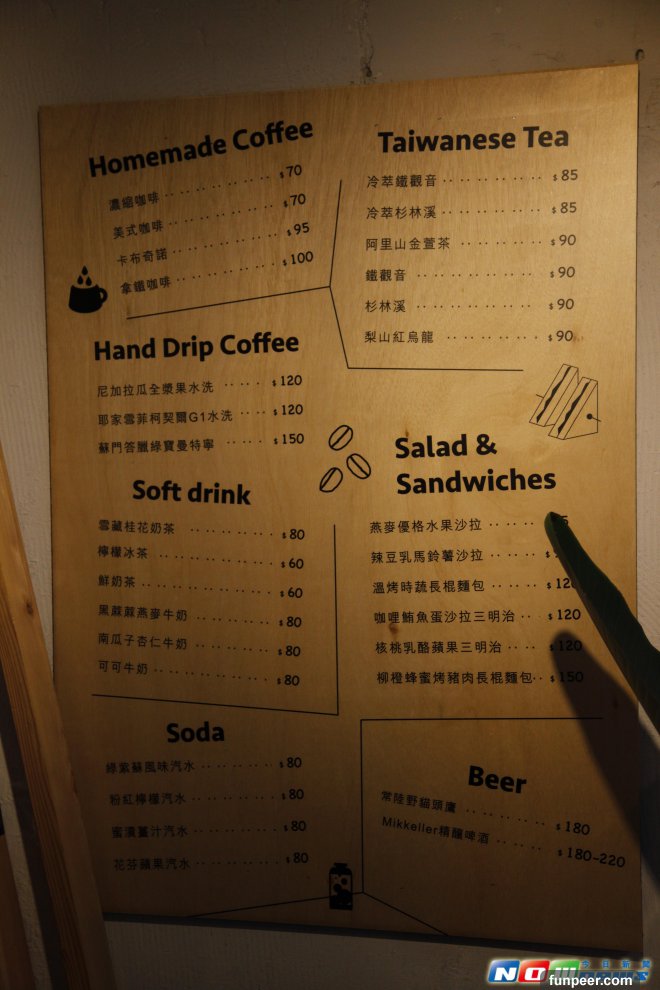 Homemade Coffee
濃縮咖啡 $70
美式咖啡 $70
卡布奇諾 $95
拿鐵咖啡 $100
Hand Drip Coffee
尼加拉瓜全漿果水洗 $120
耶家雪菲柯契爾G1水洗 $120
蘇門答臘綠寶曼特寧 $150
Soft drink
雪藏桂花奶茶 $80
檸檬冰茶 $60
鮮奶茶 $60
黑蔴蔴燕麥牛奶 $80
南瓜子杏仁牛奶 $80
可可牛奶 $80
Soda
綠紫蘇風味汽水 $80
粉紅檸檬汽水 $80
蜜漬薑汁汽水 $80
花芬蘋果汽水 $80
Taiwanese Tea
冷萃鐵觀音 $85
冷萃杉林溪 $85
阿里山金萱茶 $90
鐵觀音 $90
杉林溪 $90
梨山紅烏龍 $90
Salad &
Sandwiches
燕麥優格水果沙拉
辣豆乳馬鈴薯沙拉
溫烤時蔬長棍麵包 $120
咖哩鮪魚蛋沙拉三明治 $120
核桃乳酪蘋果三明治 $120
柳橙蜂蜜烤豬肉長棍麵包 $150
Beer
常陸野貓頭鷹 $180
Mikkeller精釀啤酒 $180-220
今日新聞
funpeer.com